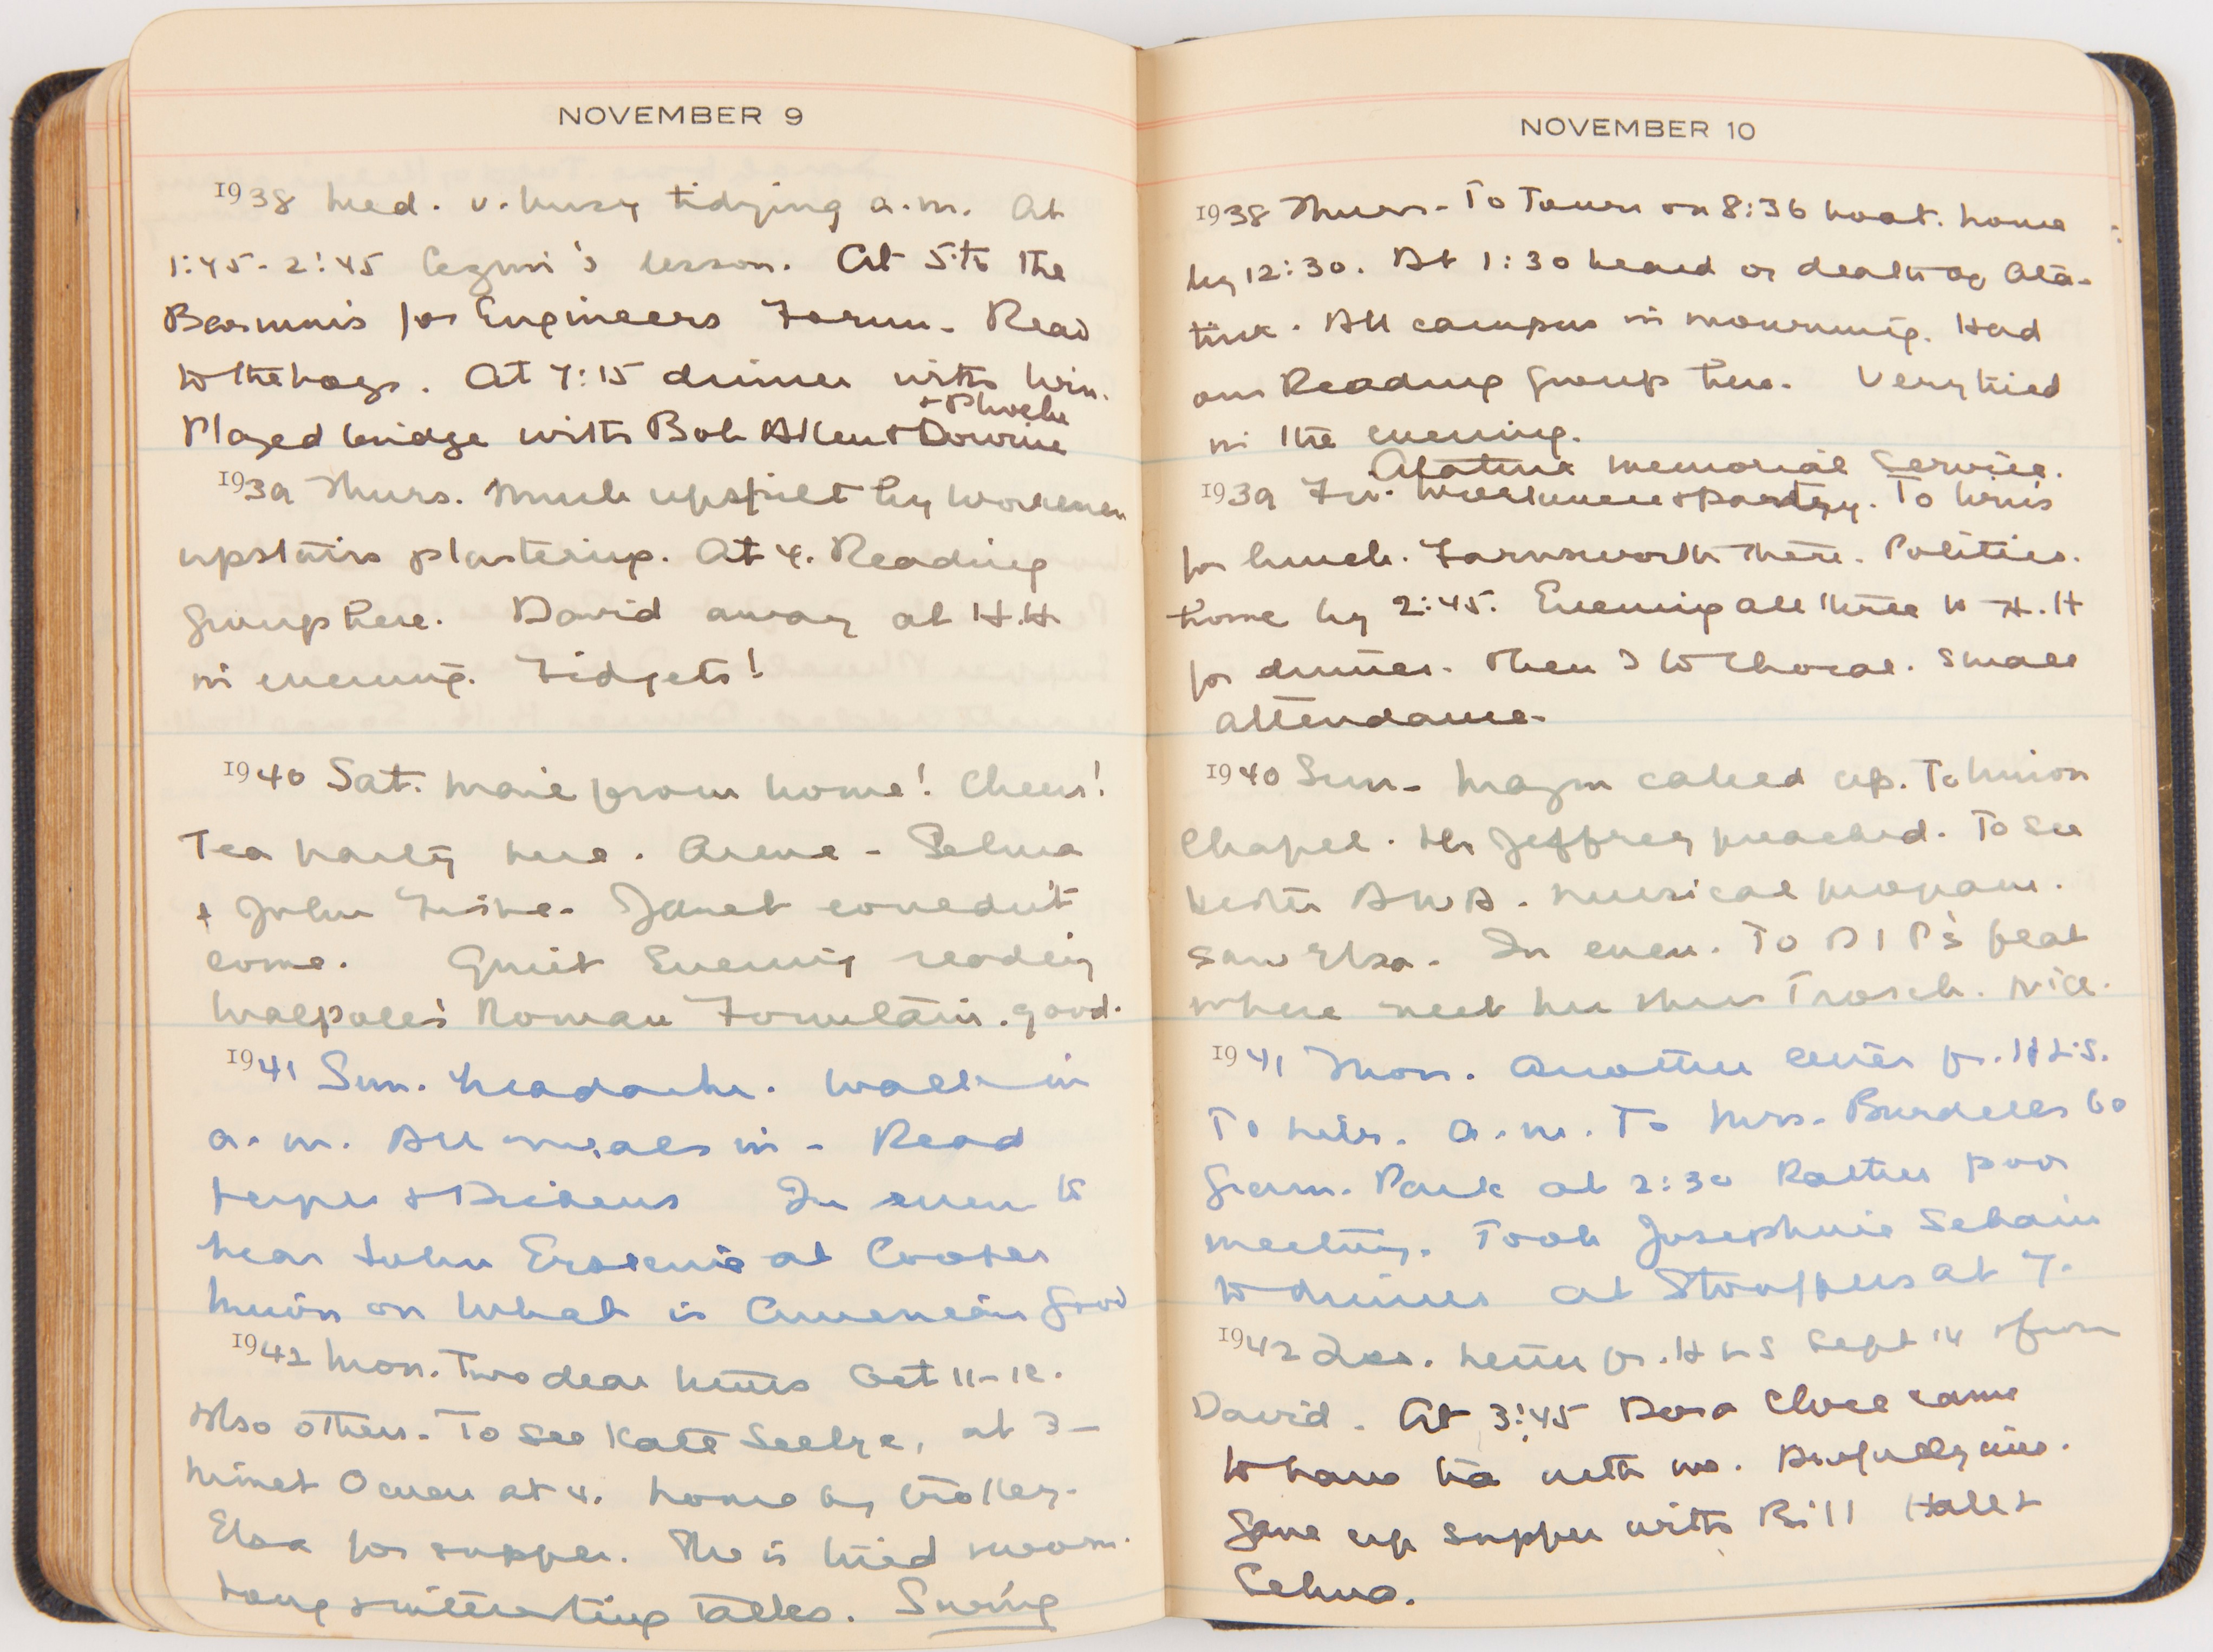 NOVEMBER 9
1938 Wed. v. busy tidying a.m. At
1:45-2:45 Cezmi's lesson. At 5 to the
for Engineers Forum. Read
to the boys. At 7:15 dinner with Win.
+ Phoebe
Played bridge with Bob Allen +
1939 Thurs. Much upset by workmen
upstairs plastering. At 4. Reading
Group here. David away at H.H
in evening. Fidgets!
1940 Sat. Mail from home! Cheers!
Tea party here. - Selma
+ John Janet couldn't
come. Quiet Evening reading
Walpole's Roman Fountain. good.
1941 Sun. headache. Walk in
a.m. All meals in - Read
+ Dickens In even to
hear John Erskine at Cooper
Union on What is American Good
1942 Mon. Two dear letters Oct 11-12.
Also others. To see Kate Seelye, at 3-
at 4. home by trolley.
Elsa for supper. She is tired
Long & interesting talks. Swing
NOVEMBER 10
1938 Thurs - To Town on 8:36 boat. home
by 12:30. At 1:30 heard of death of Ata-
turk. All campus in mourning. Had
our Reading Group here. Very tired
in the evening.
Ataturk memorial service.
1939 Fri. To Win's
for lunch. Farnsworth there. Politics.
home by 2:45. Evening all three to H.H
for dinner. Then I to Choral. Small
attendance -
1940 Sun - called up. To Union
Chapel. Mr Jeffrey preached. To see
Hester A W A. musical program.
Saw Elsa. In even. To flat
where meet her Nice.
1941 Mon. Another letter fr. H L S.
To Libr. a.m. To Mrs. 60
Gram. Park at 2:30 Rather poor
meeting. Took Josephine Schain
to dinner at Stouffers at 7.
1942 Tues. Letter fr. H L S Sept 14 + from
David. At 3:45 Dora came
to have tea with me. Awfully nice.
Gave up supper with Bill Hall +
Selma.